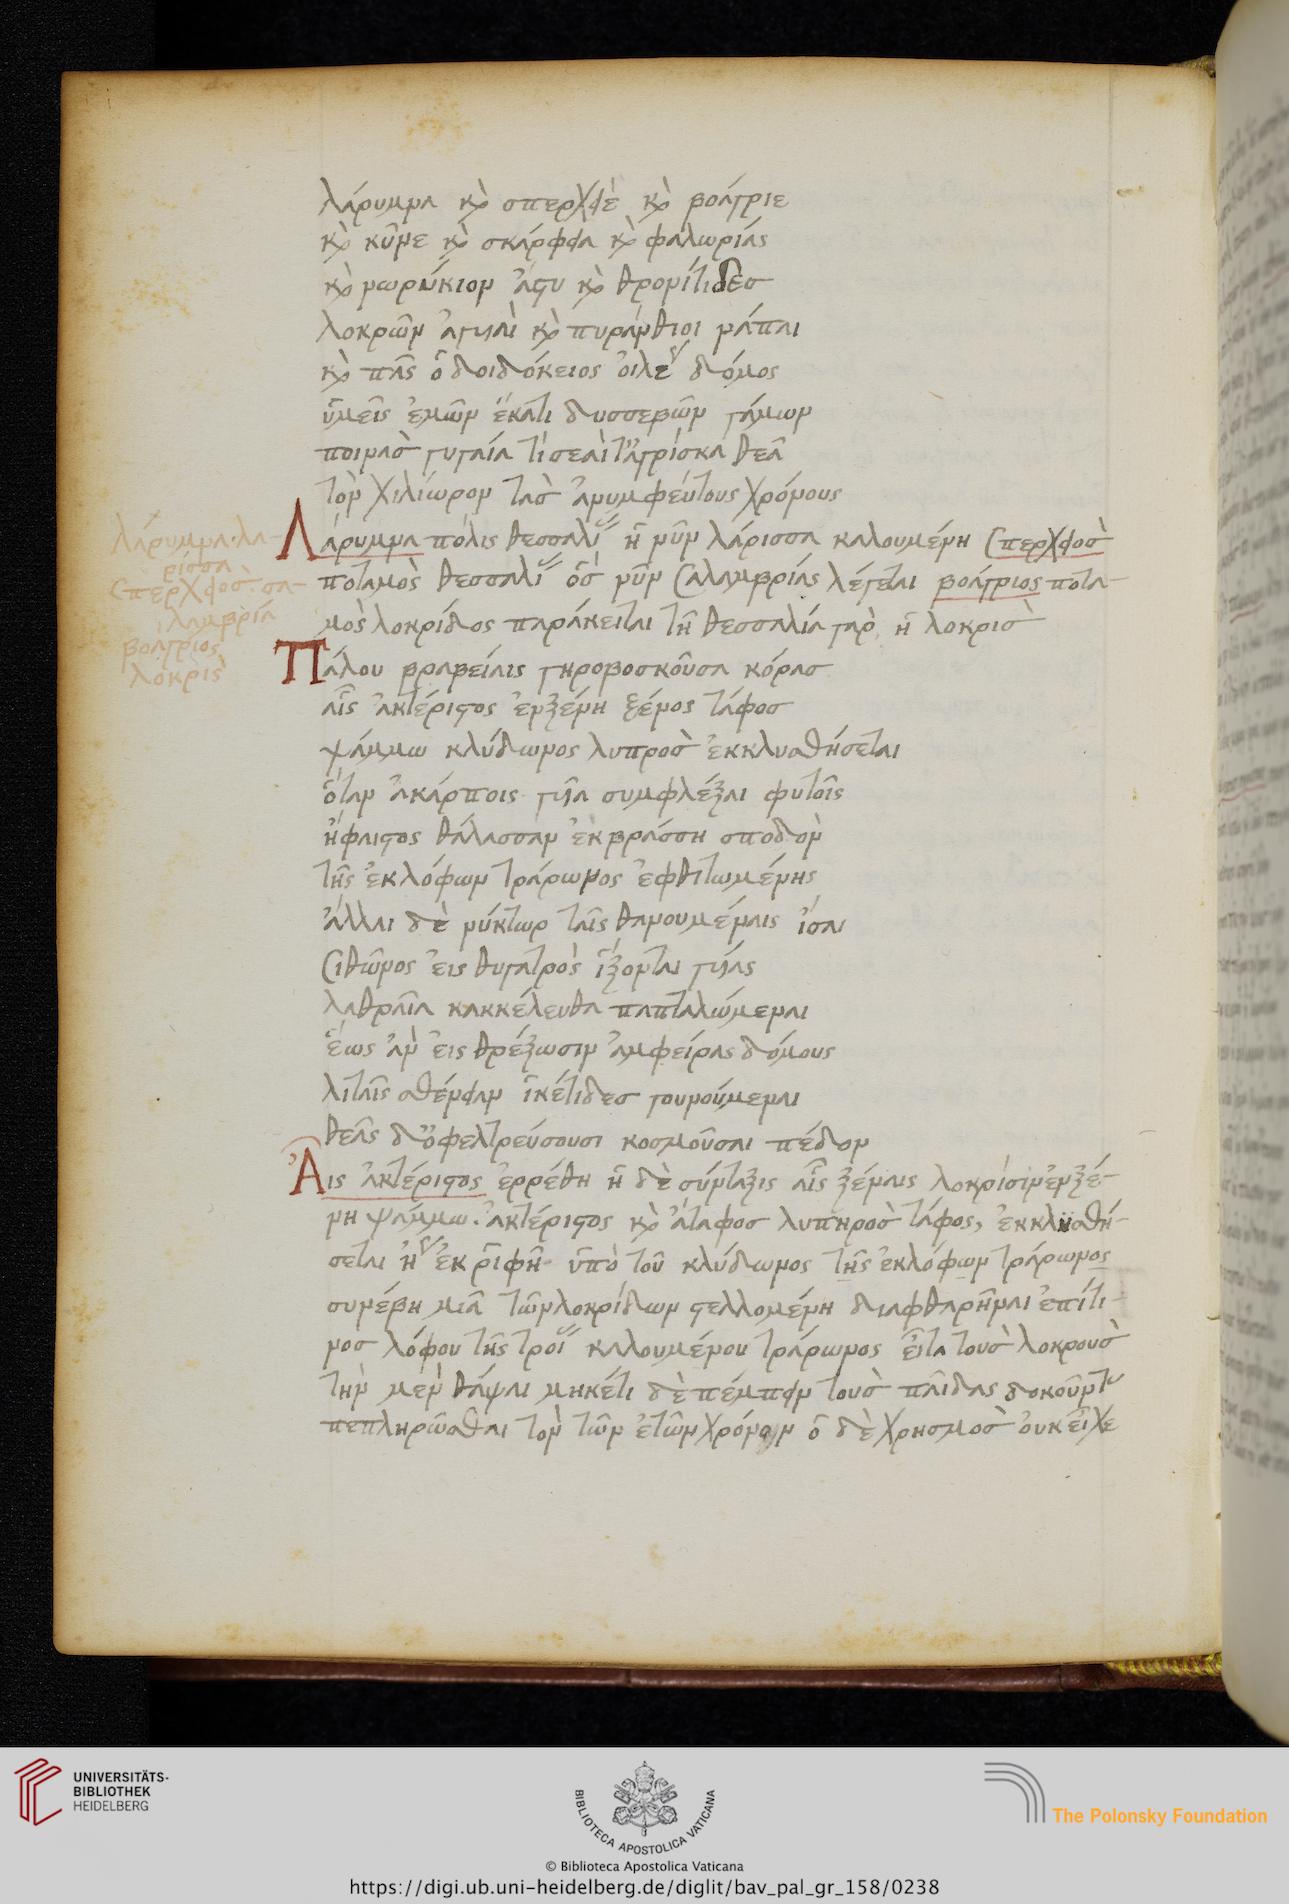 λάρυμνα κὸ σπερχειὲ κὸ βοάγριε
κὸ κῦνε κὸ σκάρφεια κὸ φαλωριὰς
κὸ ναρύκιον ἄστυ κὸ θρονίτιδες
λοκρῶν ἀγυιαὶ κὸ πυράνθιοι νάπαι
κὸ πᾶς ὁ δοιδόκειος ὀιλέως δόμος
ὑμεῖς ἐμῶν ἕκατι δυσσεβῶν γάμων
ποινὰσ γυγαία τίσεαὶτ' ἀγρίσκα θεᾶ
τὸν χιλίωρον τὰσ ἀνυμφεύτους χρόνους
Λάρυμνα πόλις θεσσαλίας ἡ νῦν λάρισσα καλουμένη Σπερχειὸσ
ποταμὸς θεσσαλίας ὅσ νῦν Σαλαμβρίας λέγεται βοάγριος ποτα-
μὸς λοκρίδος παράκειται τῆ θεσσαλία γὰρ ἡ λοκρὶσ
Πάλου βραβείαις γηροβοσκοῦσα κόρασ
αἷς ἀκτέριστος ἐνξένη ξένος τάφοσ
ψάμμω κλύδωνος λυπρὸσ ἐκκλυσθήσεται
ὅταν ἀκάρποις γυῖα συμφλέξαι φυτοῖς
ἥφαιστος θάλασσαν ἐκβράσση σποδὸν
τῆς ἐκλόφων τράρωνος ἐφθιτωμένης
ἄλλαι δὲ νύκτωρ ταῖς θανουμέναις ἴσαι
Σιθῶνος εἰς θυγατρὸς ἵξονται γυίας
λαθραῖα κακκέλευθα παπταλώμεναι
ἕως ἂν εἰς θρέξωσιν ἀμφείρας δόμους
λιταῖς σθένειαν ἱκέτιδεσ γουνούμεναι
θεᾶς δ' ὀφελτρεύσουσι κοσμοῦσαι πέδον
Ἆις ἀκτέριστος ἐρρέθη ἡ δὲ σύνταξις αἷς ξέναις λοκρίσιν ἐνξέ-
νη ψάμμω. ἀκτέριστος κὸ ἄταφοσ λυπηρὸσ τάφος, ἐκκλυσθή-
σεται ἢγουν ἐκ ῥιφῆ ὑπὸ τοῦ κλύδωνος τῆς ἐκλόφων τράρωνος
συνέβη μιᾶ τῶν λοκρίδων στελλομένη διαφθαρῆναι ἐπίτι-
νοσ λόφου τῆς τροίας καλουμένου τράρωνος εἶτα τοὺσ λοκροὺσ
τὴν μὲν θάψαι μηκέτι δὲ πέμπειν τοὺσ παῖδας δοκοῦντας
πεπληρῶσθαι τὸν τῶν ἐτῶν χρόνον ὁ δὲ χρησμὸσ ὀυκ εἶχε
λάρυμνα· λα-
ρίσσα
Σπερχειὸσ· σα-
λαμβρία
βοάγριος
λόκρις
UNIVERSITÄTS-
BIBLIOTHEK
HEIDELBERG
BIBLIOTECA APOSTOLICA VATICANA
The Polonsky Foundation
© Biblioteca Apostolica Vaticana
https://digi.ub.uni-heidelberg.de/diglit/bav_pal_gr_158/0238